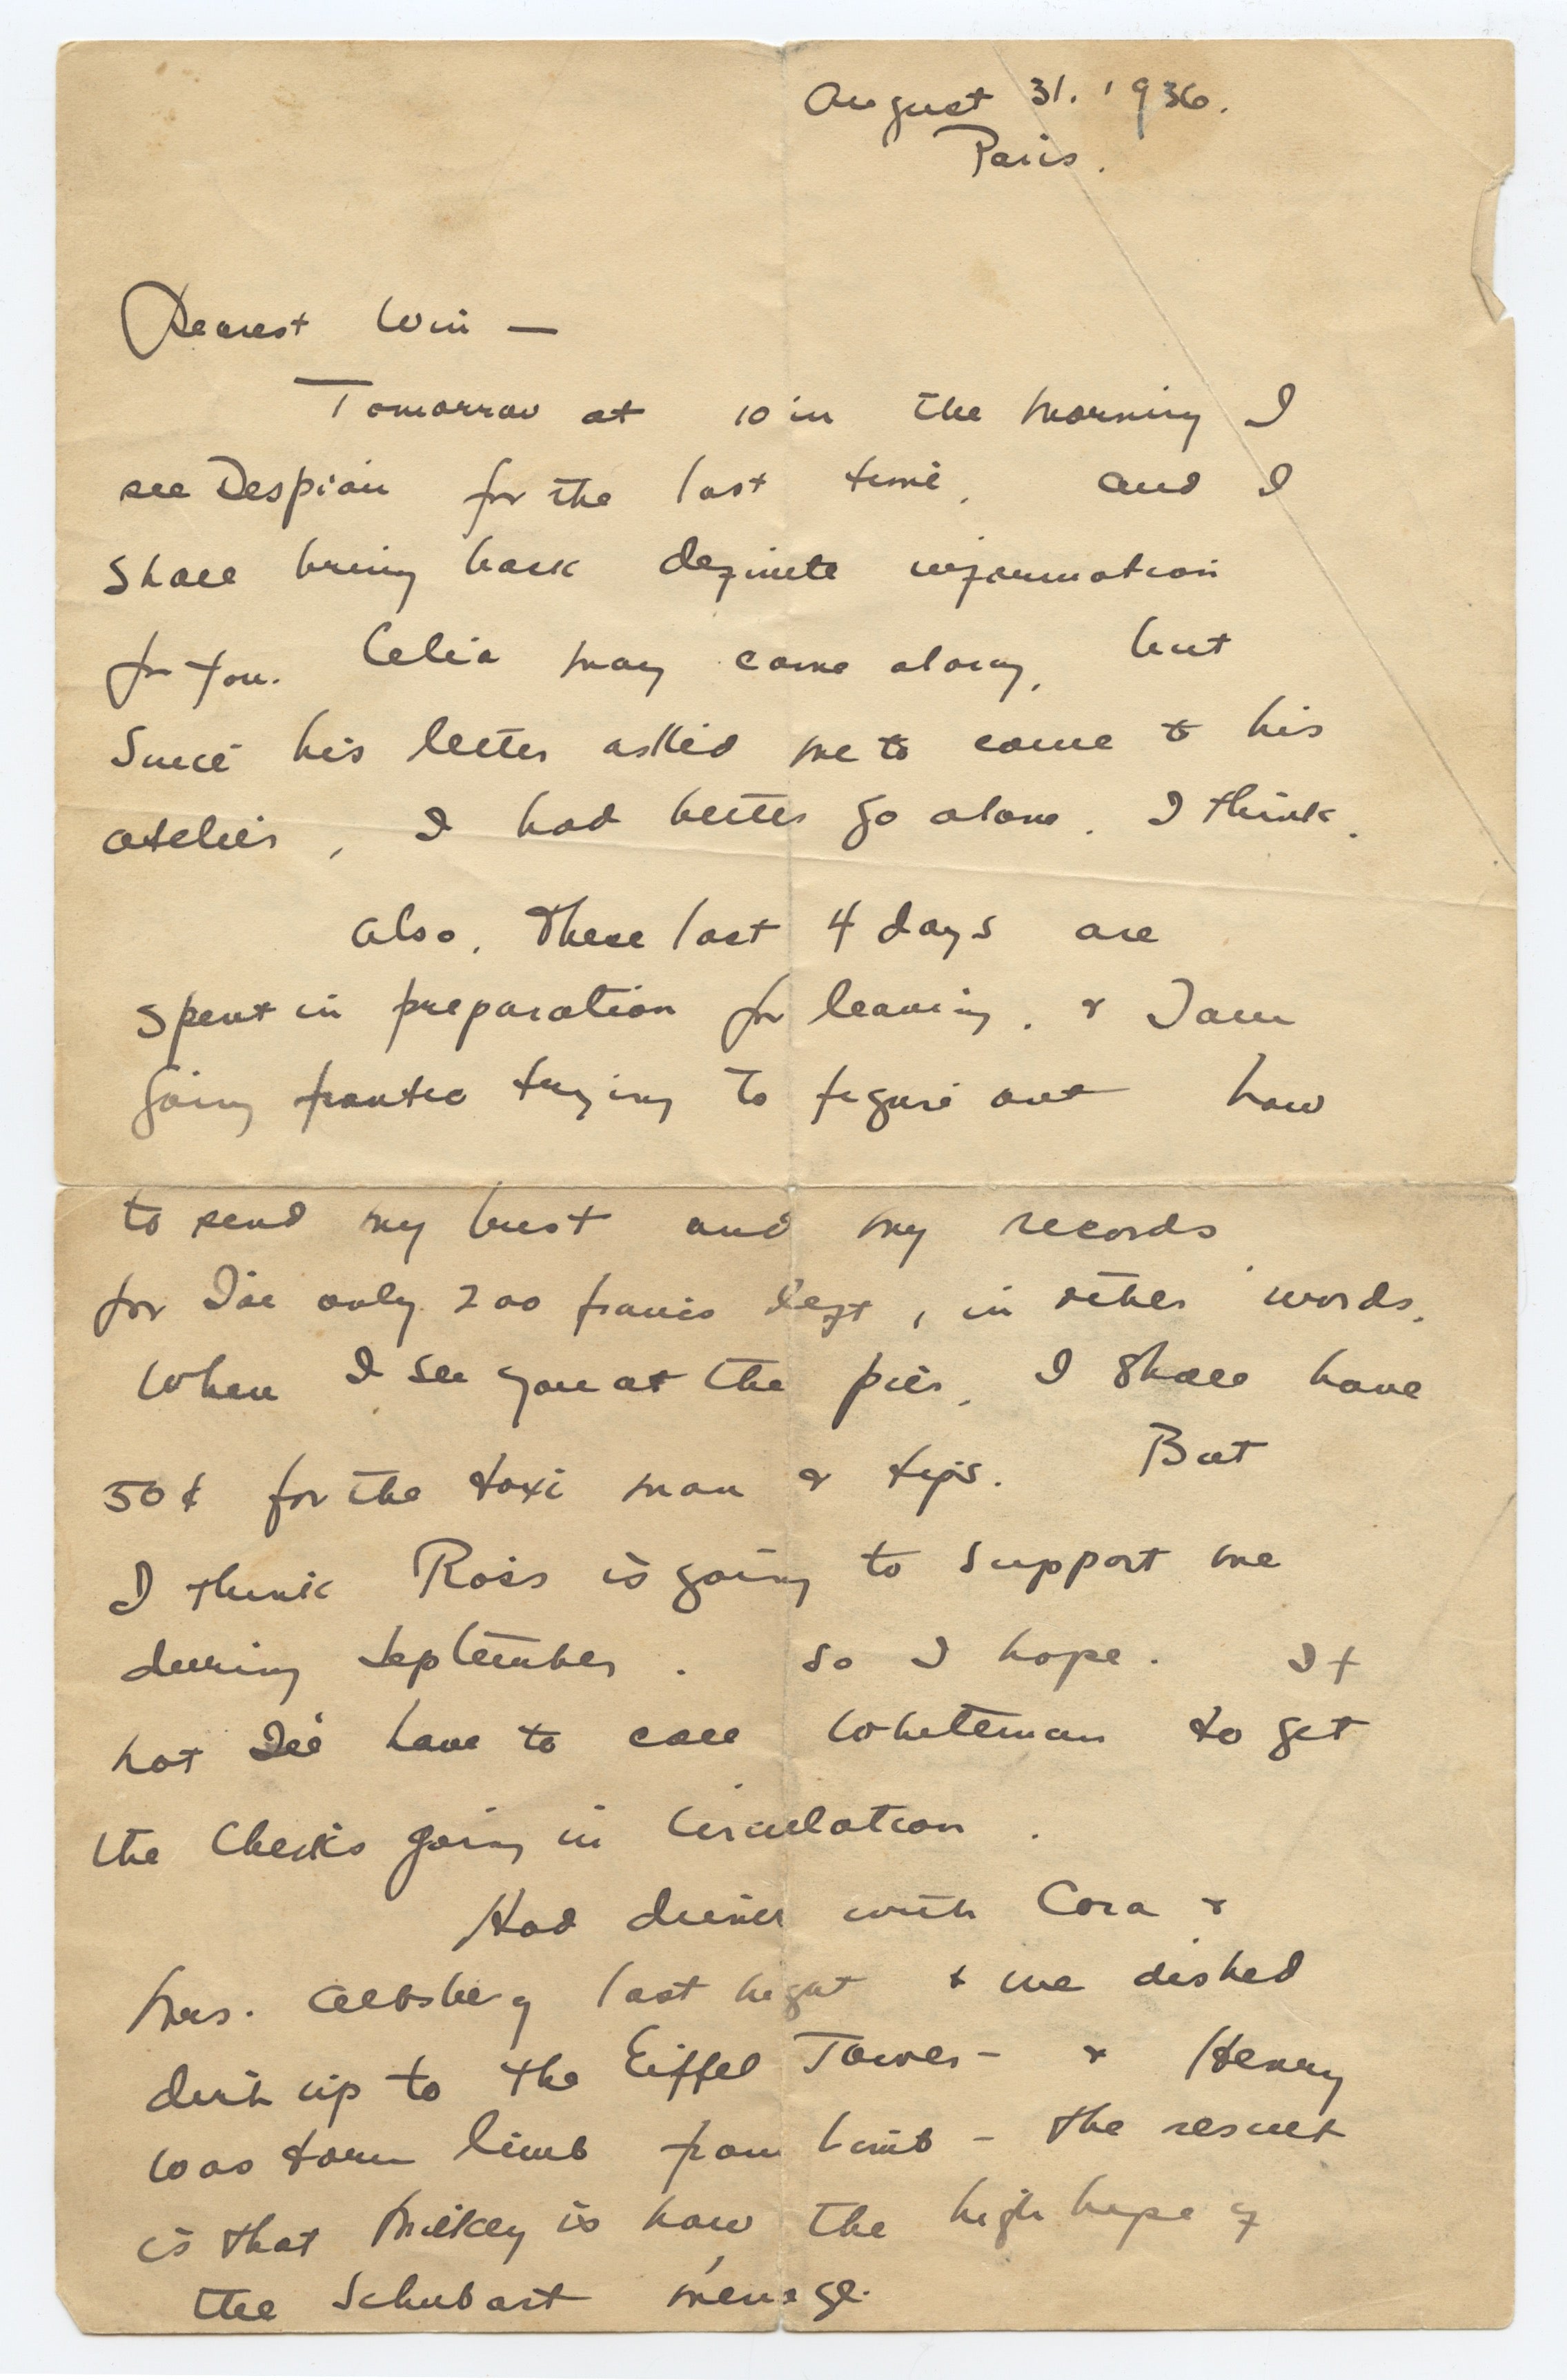 August 31. 1936.
Paris.
Dearest Win —
Tomorrow at 10 in the morning I
see Despiau for the last time, and I
shall bring back definite information
for you. Celia may come along, but
since his letter asked me to come to his
atelier, I had better go alone. I think.
Also, these last 4 days are
spent in preparation for leaving, & I am
going frantic trying to figure out how
to send my bust and my records
for I've only 200 francs left, in other words,
when I see you at the pier, I shall have
50¢ for the taxi man & tips. But
I think Ross is going to support me
during September. So I hope. If
not I'll have to call Whiteman to get
the checks going in circulation.
Had dinner with Cora &
Mrs. last night & we dished
dirt up to the Eiffel Tower — & Henry
was torn limb from limb — the result
is that Mickey is now the high hope of
the Schubart ménage.